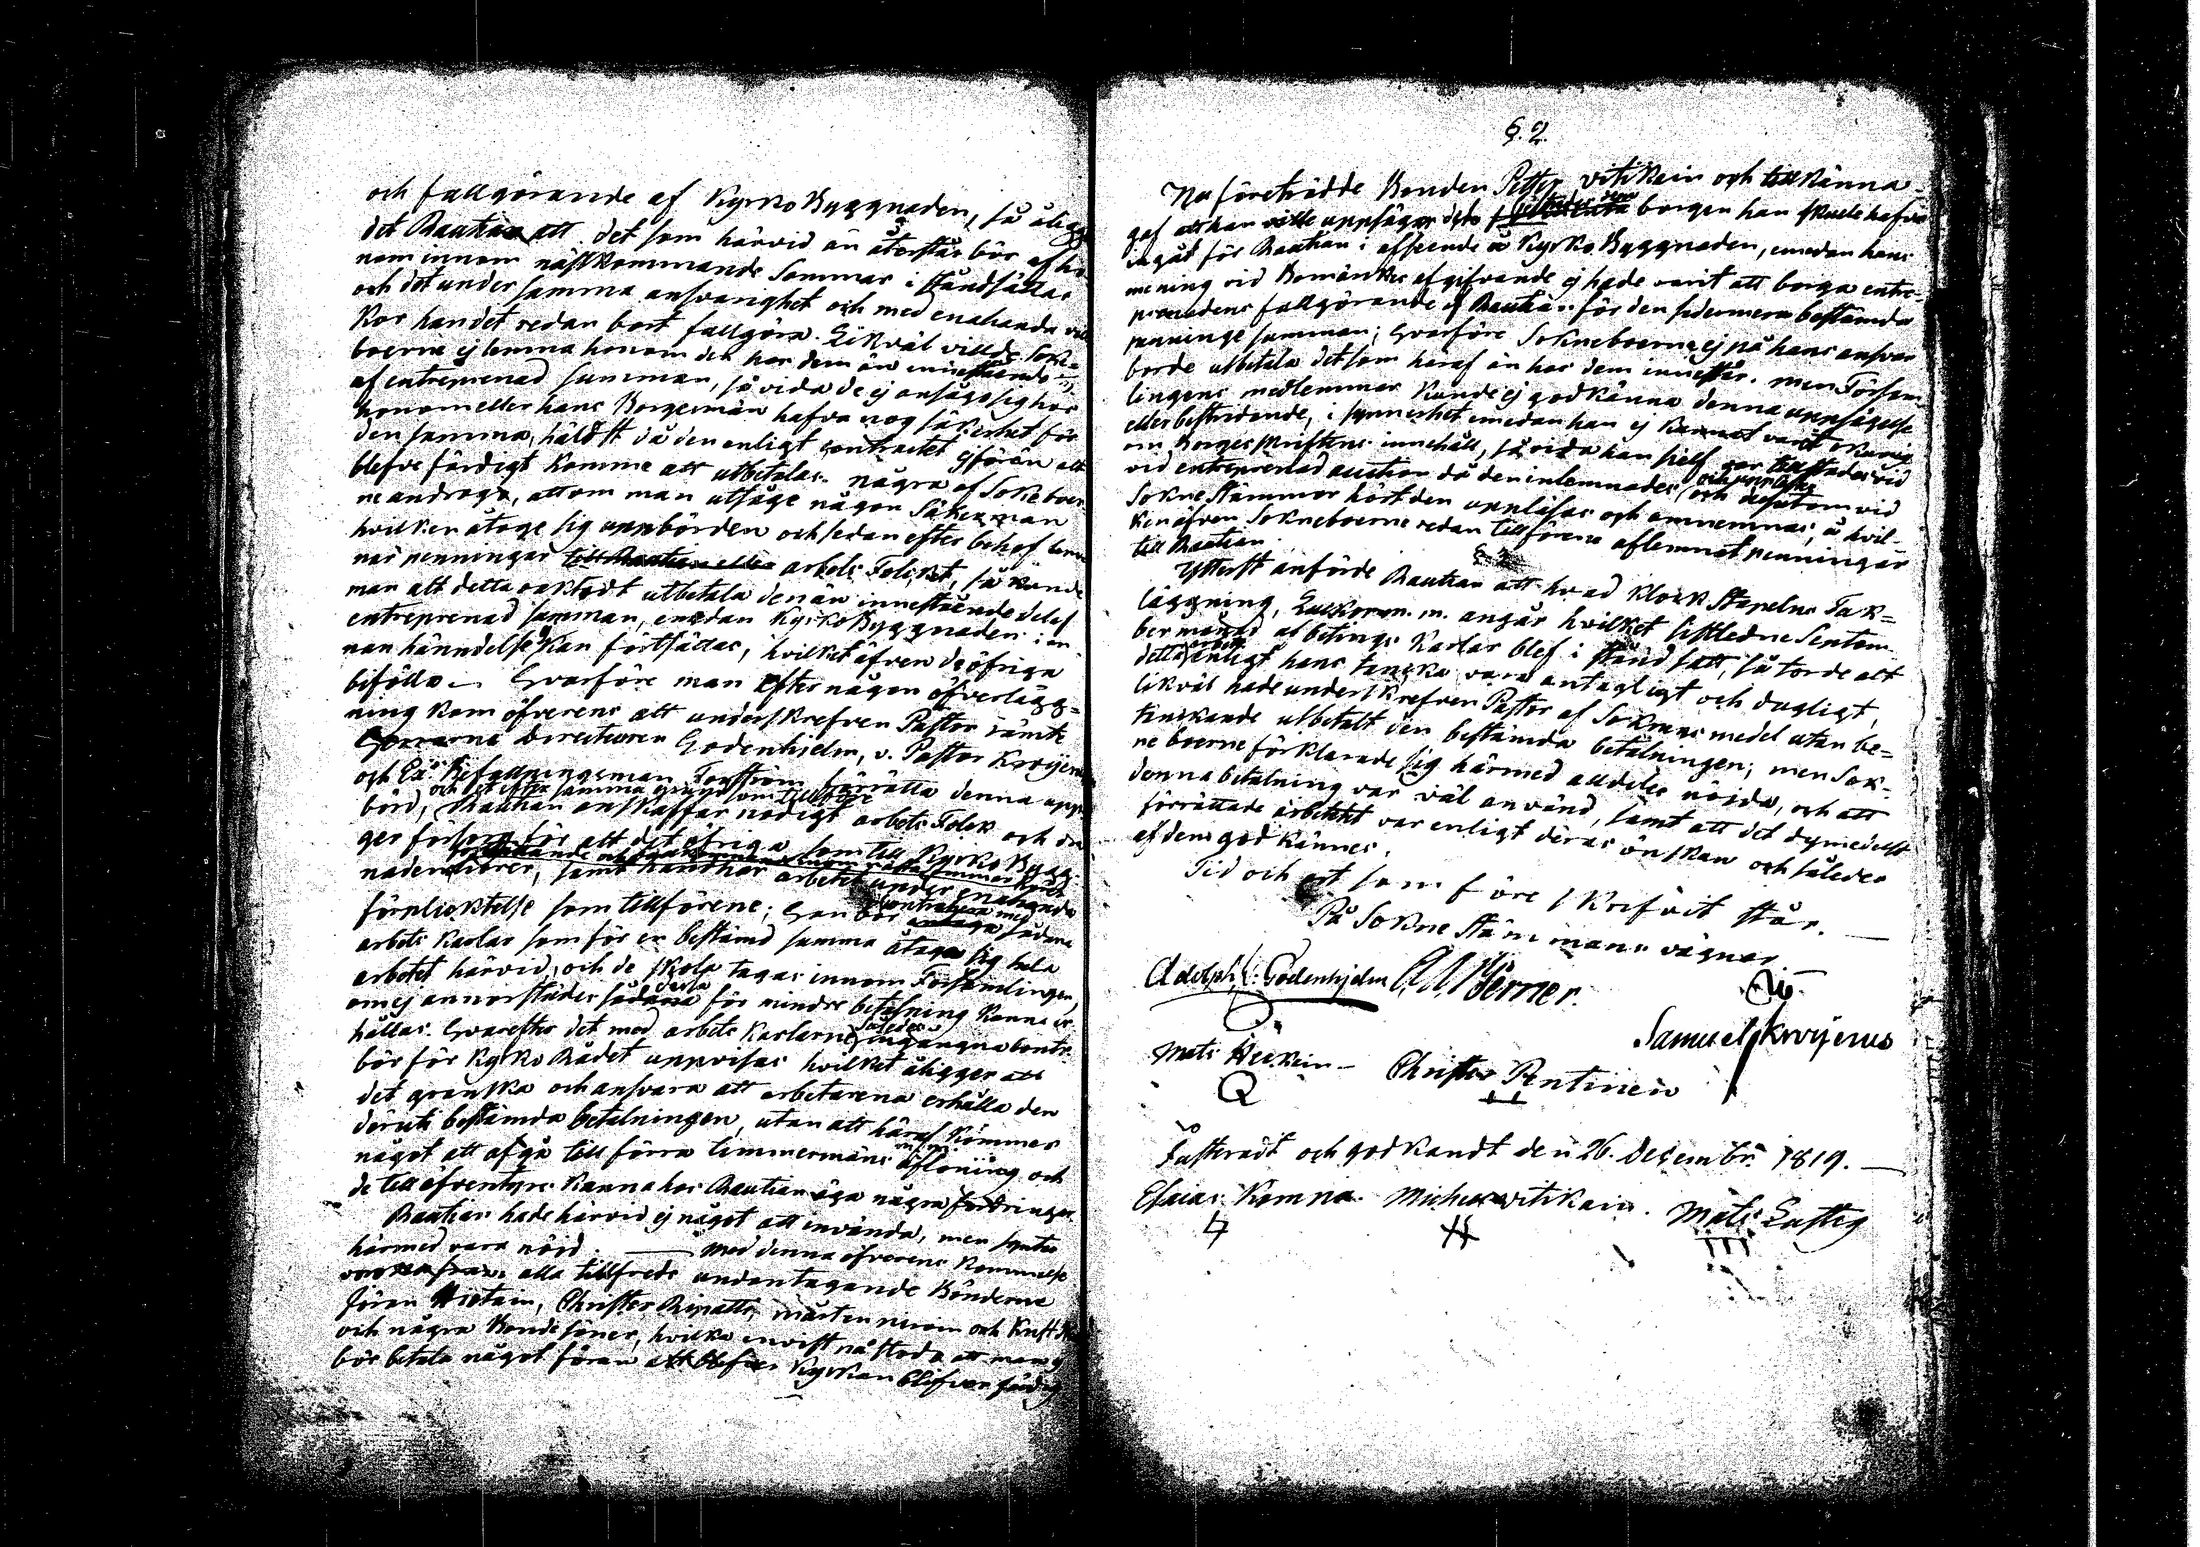 och fullgörande af Kyrko Byggnaden, så åligg
det Rautian att det som härvid än återstår bör af ho
nom innom nästkommande Sommar i ståndsättas
och det under samma ansvarighet och med enahanda vill
kor han det redan bort fullgöra. Likväl ville Sok-
boerne ej lemna honom det hos dem än innestående
af entreprenad summan, så vida de ej ansågo sig hos
honom eller hans Borgesmän hafva nog säkerhet för
den samma, hälst då den enligt contractet ej förän allt
blefve färdigt komme att utbetalas. några af Sokneboer
ne androgo, att om man utsåge någon Säker man
hvilken åtoge sig uppbörden och sedan efter behof lemn
nar penningar till Rautian eller arbets Folket, så kunde
man att detta oaktadt utbetala den än innestående del af
entreprenad summan, endan Kyrko Byggnaden i an
nan händelse kan fortsättas, hvilket äfven de öfriga
biföllo. — Hvarföre man efter någon öfverlägg-
ning kom öfverens att underskrefven Pastor jämte
Herrarne Directeuren Godenhjelm, v. Pastor Kroijerus
och Befallningsman Forsström förrätta denna upp-
och det efter samma grund som tillföre
börd, Rautian anskaffar nödigt arbets Folck och dra
ger försorg för att det öfriga som till Kyrko Bygg-
naden hörer, samt handhar arbetet under enahanda
förpliktelse som tillförene; Han bör contrahera med
antaga sådana
arbets Karlar som för en bestämd summa åtaga sig hela
arbetet härvid, och de skola tagas innom Församlingen,
om ej annorstädes sådana för mindre betalning kunna er
hållas. Hvarefter det med arbets Karlarne således ingångna contr.
bör för Kyrko Rådet uppvisas hvilket åligger att
det granska och ansvara att arbetarena erhålla den
deruti bestämda betalningen, utan att häraf kommer
något att afgå till förra timmermäns aflöning och
de till äfventyrs kunna hos Rautian äga några fordringar
Rautian hade härvid ej något att invända, men syntes
härmed vara nöjd. — med denna öfverens kommelse
voro alla tillfreds undantagande Bönderne
Jöran Hietain, Christer Ripatti, mårten niroin och
och några Bonde söner, hvilka envist på stodo att man ej
bör betala något förän Kyrkan blifver färdig
§. 2.
Nu företrädde Bonden Petter vitikain och tillkänna-
gaf att han ville uppsäga den borgen han skulle hafva
ingåt för Rautian i afseende å Kyrko Byggnaden, emedan hans
mening vid Bomärkets afgifvande ej hade varit att borga entre-
prenadens fullgörande af Rautian för den sedermera bestämda
penninge summan; Hvarföre Sokneboerne ej på hans ansvar
borde utbetala det som häraf än hos dem innestår. men Försam-
lingens medlemmar kunde ej godkänna denna uppsägelse
eller bestridande, i synnerhet emedan han ej kunnat varit okunnig
om Borges skriftens innehåll, så vida han sielf var tillstädes vid
vid entreprenad auction då den inlemnades och upplästes och dessutom vid
Sokne stämmor hört den uppläsas och omnemnas, å hvil-
ken äfven Sokneboerne redan tillförene aflemnat penningar
till Rautian.
§. 3.
Ytterst anförde Rautian att hvad klock stapelns Tak-
läggning, Luckor m. m. angår hvilket sistledne Septem-
ber månad af betings Karlar blef i stånd satt, så torde alt
detta arbete enligt hans tancka vara antagligt och dugligt,
likväl hade underskrefven Pastor af Soknens medel utan be-
tänkande utbetalt den bestämda betalningen; men Sok-
ne boerne förklarade sig härmed alldeles nöjda, och att
denna betalning var väl använd, samt att det dymedelst
förrättade arbetet var enligt deras önskan och således
af dem godkännes.
Tid och ort som före skrifvit står.
På Sokne stämmans vägnar
Adolph L: Godenhjelm
Samuel Kroijerus
Mats Heikein — Christer Pentinen
Justeradt och godkändt den 26. December 1819.
Esaias Komna. Michel vitikain. Mats Lustig